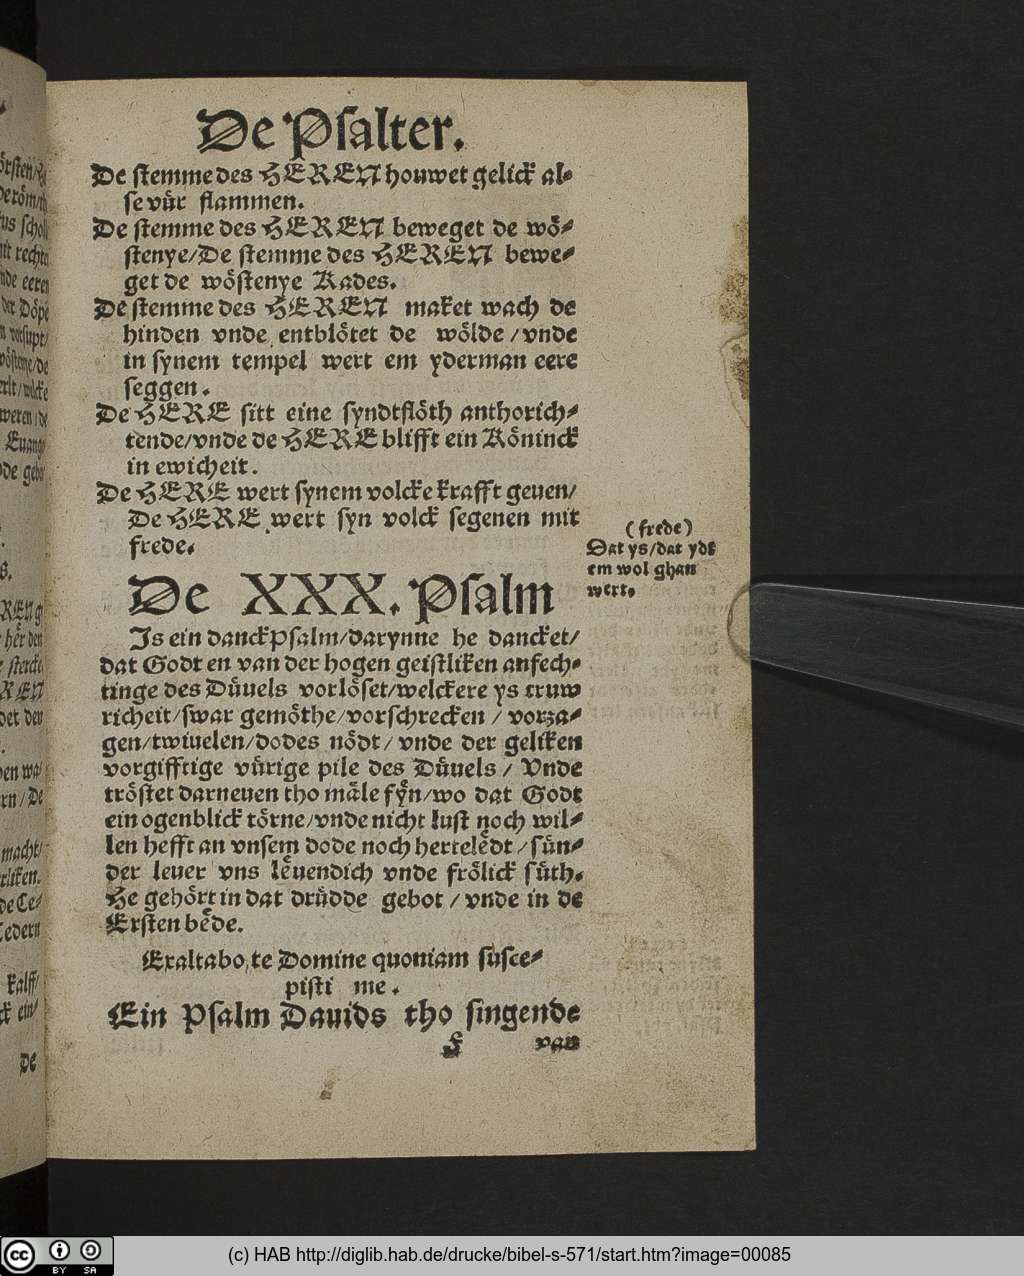 De Psalter.
De stemme des HEREN houwet gelick al-
se vuͤr flammen.
De stemme des HEREN beweget de woͤ-
stenye/De stemme des HEREN bewe-
get de woͤstenye Kades.
De stemme des HEREN maket wach de
hinden vnde entbloͤtet de woͤlde/vnde
in synem tempel wert em yderman eere
seggen.
De HERE sitt eine syndtfloͤth anthorich-
tende/vnde de HERE blifft ein Koͤninck
in ewicheit.
De HERE wert synem volcke krafft geuen/
De HERE wert syn volck segenen mit
frede.
(frede)
Dat ys/dat yds
em wol ghan
wert.
De XXX. Psalm
Js ein danckpsalm/darynne he dancket/
dat Godt en van der hogen geistliken anfech-
tinge des Duͤuels vorloͤset/welckere ys truw
richeit/swar gemoͤthe/vorschrecken/vorza-
gen/twiuelen/dodes noͤdt/vnde der geliken
vorgifftige vuͤrige pile des Duͤuels/Vnde
troͤstet darneuen tho maͤle fyͤn/wo dat Godt
ein ogenblick toͤrne/vnde nicht lust noch wil-
len hefft an vnsem dode noch herteleͤdt/suͤn-
der leuer vns leͤuendich vnde froͤlick suͤth.
He gehoͤrt in dat druͤdde gebot/vnde in de
Ersten beͤde.
Exaltabo te Domine quoniam susce-
pisti me.
Ein Psalm Dauids tho singende
f van
De
(c) HAB http://diglib.hab.de/drucke/bibel-s-571/start.htm?image=00085
cc BY SA